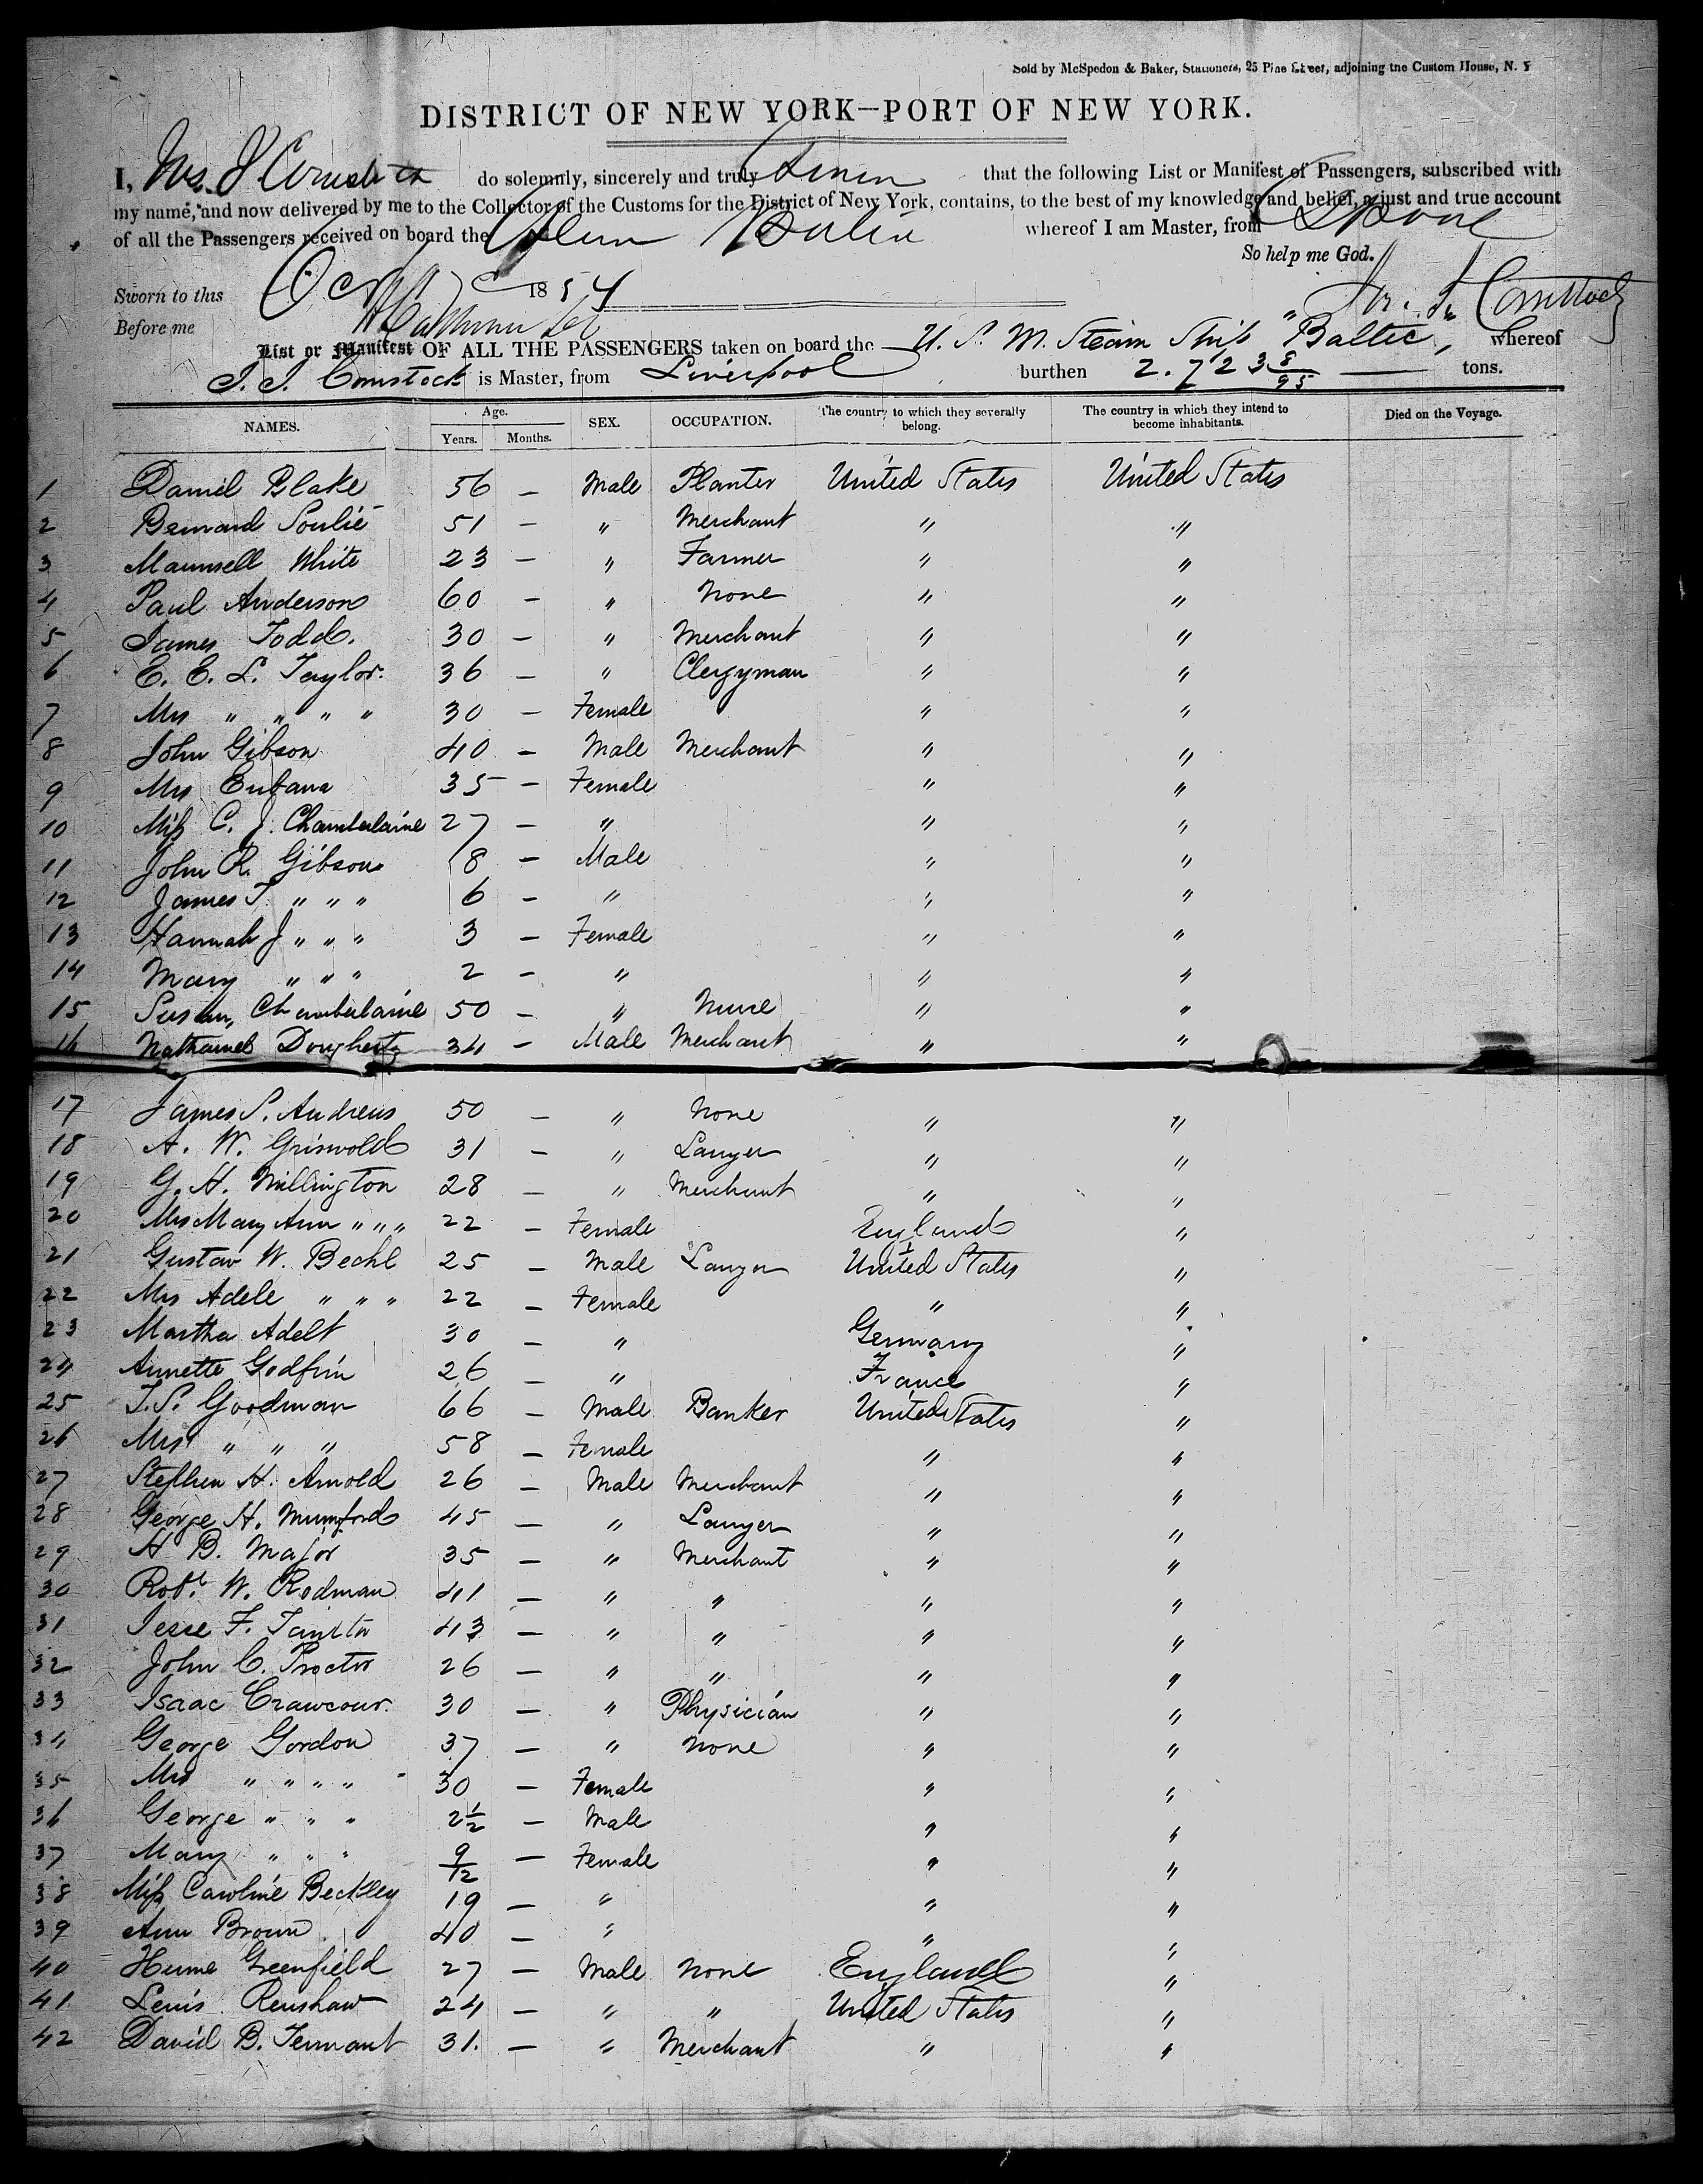 Sold by McSpedon & Baker, Stationers, 25 Pine Street, adjoining the Custom House, N. Y
DISTRICT OF NEW YORK—PORT OF NEW YORK.
I, do solemnly, sincerely and truly that the following List or Manifest of Passengers, subscribed with
my name, and now delivered by me to the Collector of the Customs for the District of New York, contains, to the best of my knowledge and belief, a just and true account
of all the Passengers received on board the whereof I am Master, from
So help me God.
Sworn to this Oct 1854
Before me
List or Manifest OF ALL THE PASSENGERS taken on board the U. S. M. Steam Ship "Baltic, whereof
J. J. Comstock is Master, from Liverpool burthen 2.723 8/95 tons.
NAMES. Age. Years. Months. SEX. OCCUPATION. The country to which they severally belong. The country in which they intend to become inhabitants. Died on the Voyage.
1 Daniel Blake 56 — Male Planter United States United States
2 Bernard Soulié 51 — " Merchant " "
3 Maunsell White 23 — " Farmer " "
4 Paul Anderson 60 — " None " "
5 James Todd. 30 — " Merchant " "
6 E. E. L. Taylor. 36 — " Clergyman " "
7 Mrs " " " " 30 — Female " "
8 John Gibson 40 — Male Merchant " "
9 Mrs 35 — Female " "
10 Miss C. J. Chamberlaine 27 — " " "
11 John R. Gibson 8 — Male " "
12 James T. " " " 6 — " " "
13 Hannah J " " " 3 — Female " "
14 Mary " " " 2 — " " "
15 Susan, Chamberlaine 50 — " Nurse " "
16 Nathaniel Dougherty 34 — Male Merchant " "
17 James S. Andrews 50 — " None " "
18 A. W. Griswold 31 — " Lawyer " "
19 G. H. Millington 28 — " Merchant " "
20 Mrs Mary Ann " " " 22 — Female England "
21 Gustav W. Bechl 25 — Male Lawyer United States "
22 Mrs Adele " " " 22 — Female " "
23 Martha Adelt 30 — " Germany "
24 Annette Godfrin 26 — " France "
25 T. S. Goodman 66 — Male Banker United States "
26 Mrs " " " 58 — Female " "
27 Stephen H. Arnold 26 — Male Merchant " "
28 George H. Mumford 45 — " Lawyer " "
29 H B. Major 35 — " Merchant " "
30 Robt. W. Rodman 41 — " " " "
31 Jesse F. 43 — " " " "
32 John C. Proctor 26 — " " " "
33 Isaac Crawcour. 30 — " Physician " "
34 George Gordon 37 — " None " "
35 Mrs " " " " 30 — Female " "
36 George " " " 2½ — Male " "
37 Mary " " " 9/12 — Female " "
38 Miss Caroline Beckley 19 — " " "
39 Ann Brown 40 — " " "
40 Hume Greenfield 27 — Male None England "
41 Lewis Renshaw 24 — " " United States "
42 David B. Tennant 31. — " Merchant " "